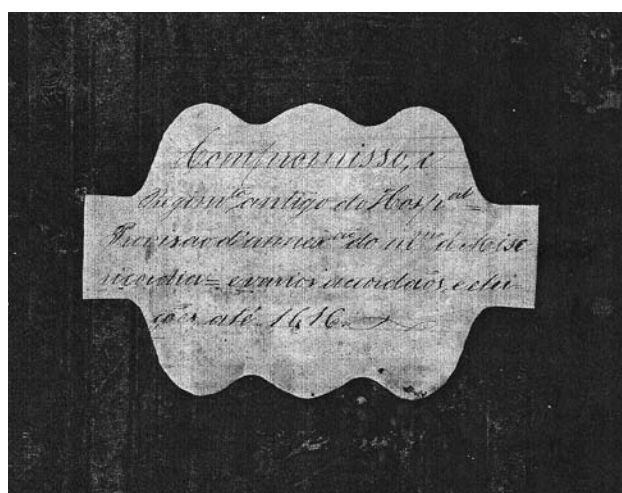 Compromisso, e
Regim.to antigo do Hosp.al =
Provizão d'annex.ção do m.mo á Mise
ricordia = e varios accordãos, e elei
ções até 1616.